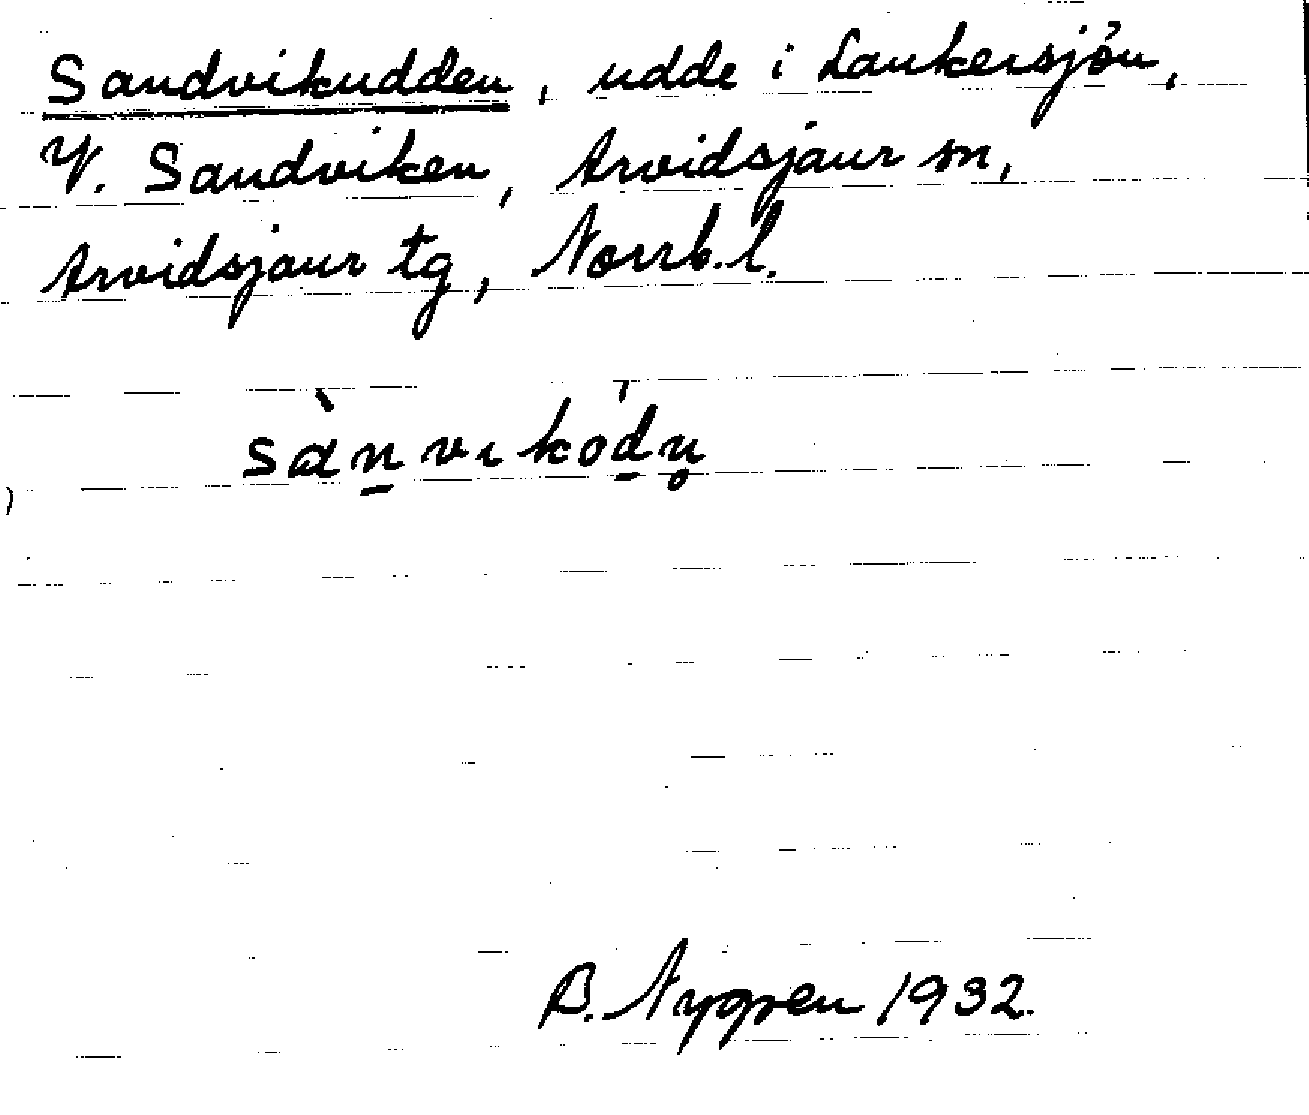 Sandvikudden, udde i Laukersjön,
V. Sandviken, Arvidsjaur sn,
Arvidsjaur tg, Norrb. l.
sàn̲vıkod̲n̥
B. Nygren 1932.